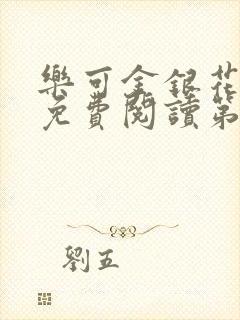 樂可金銀花
免費閱讀第
劉五